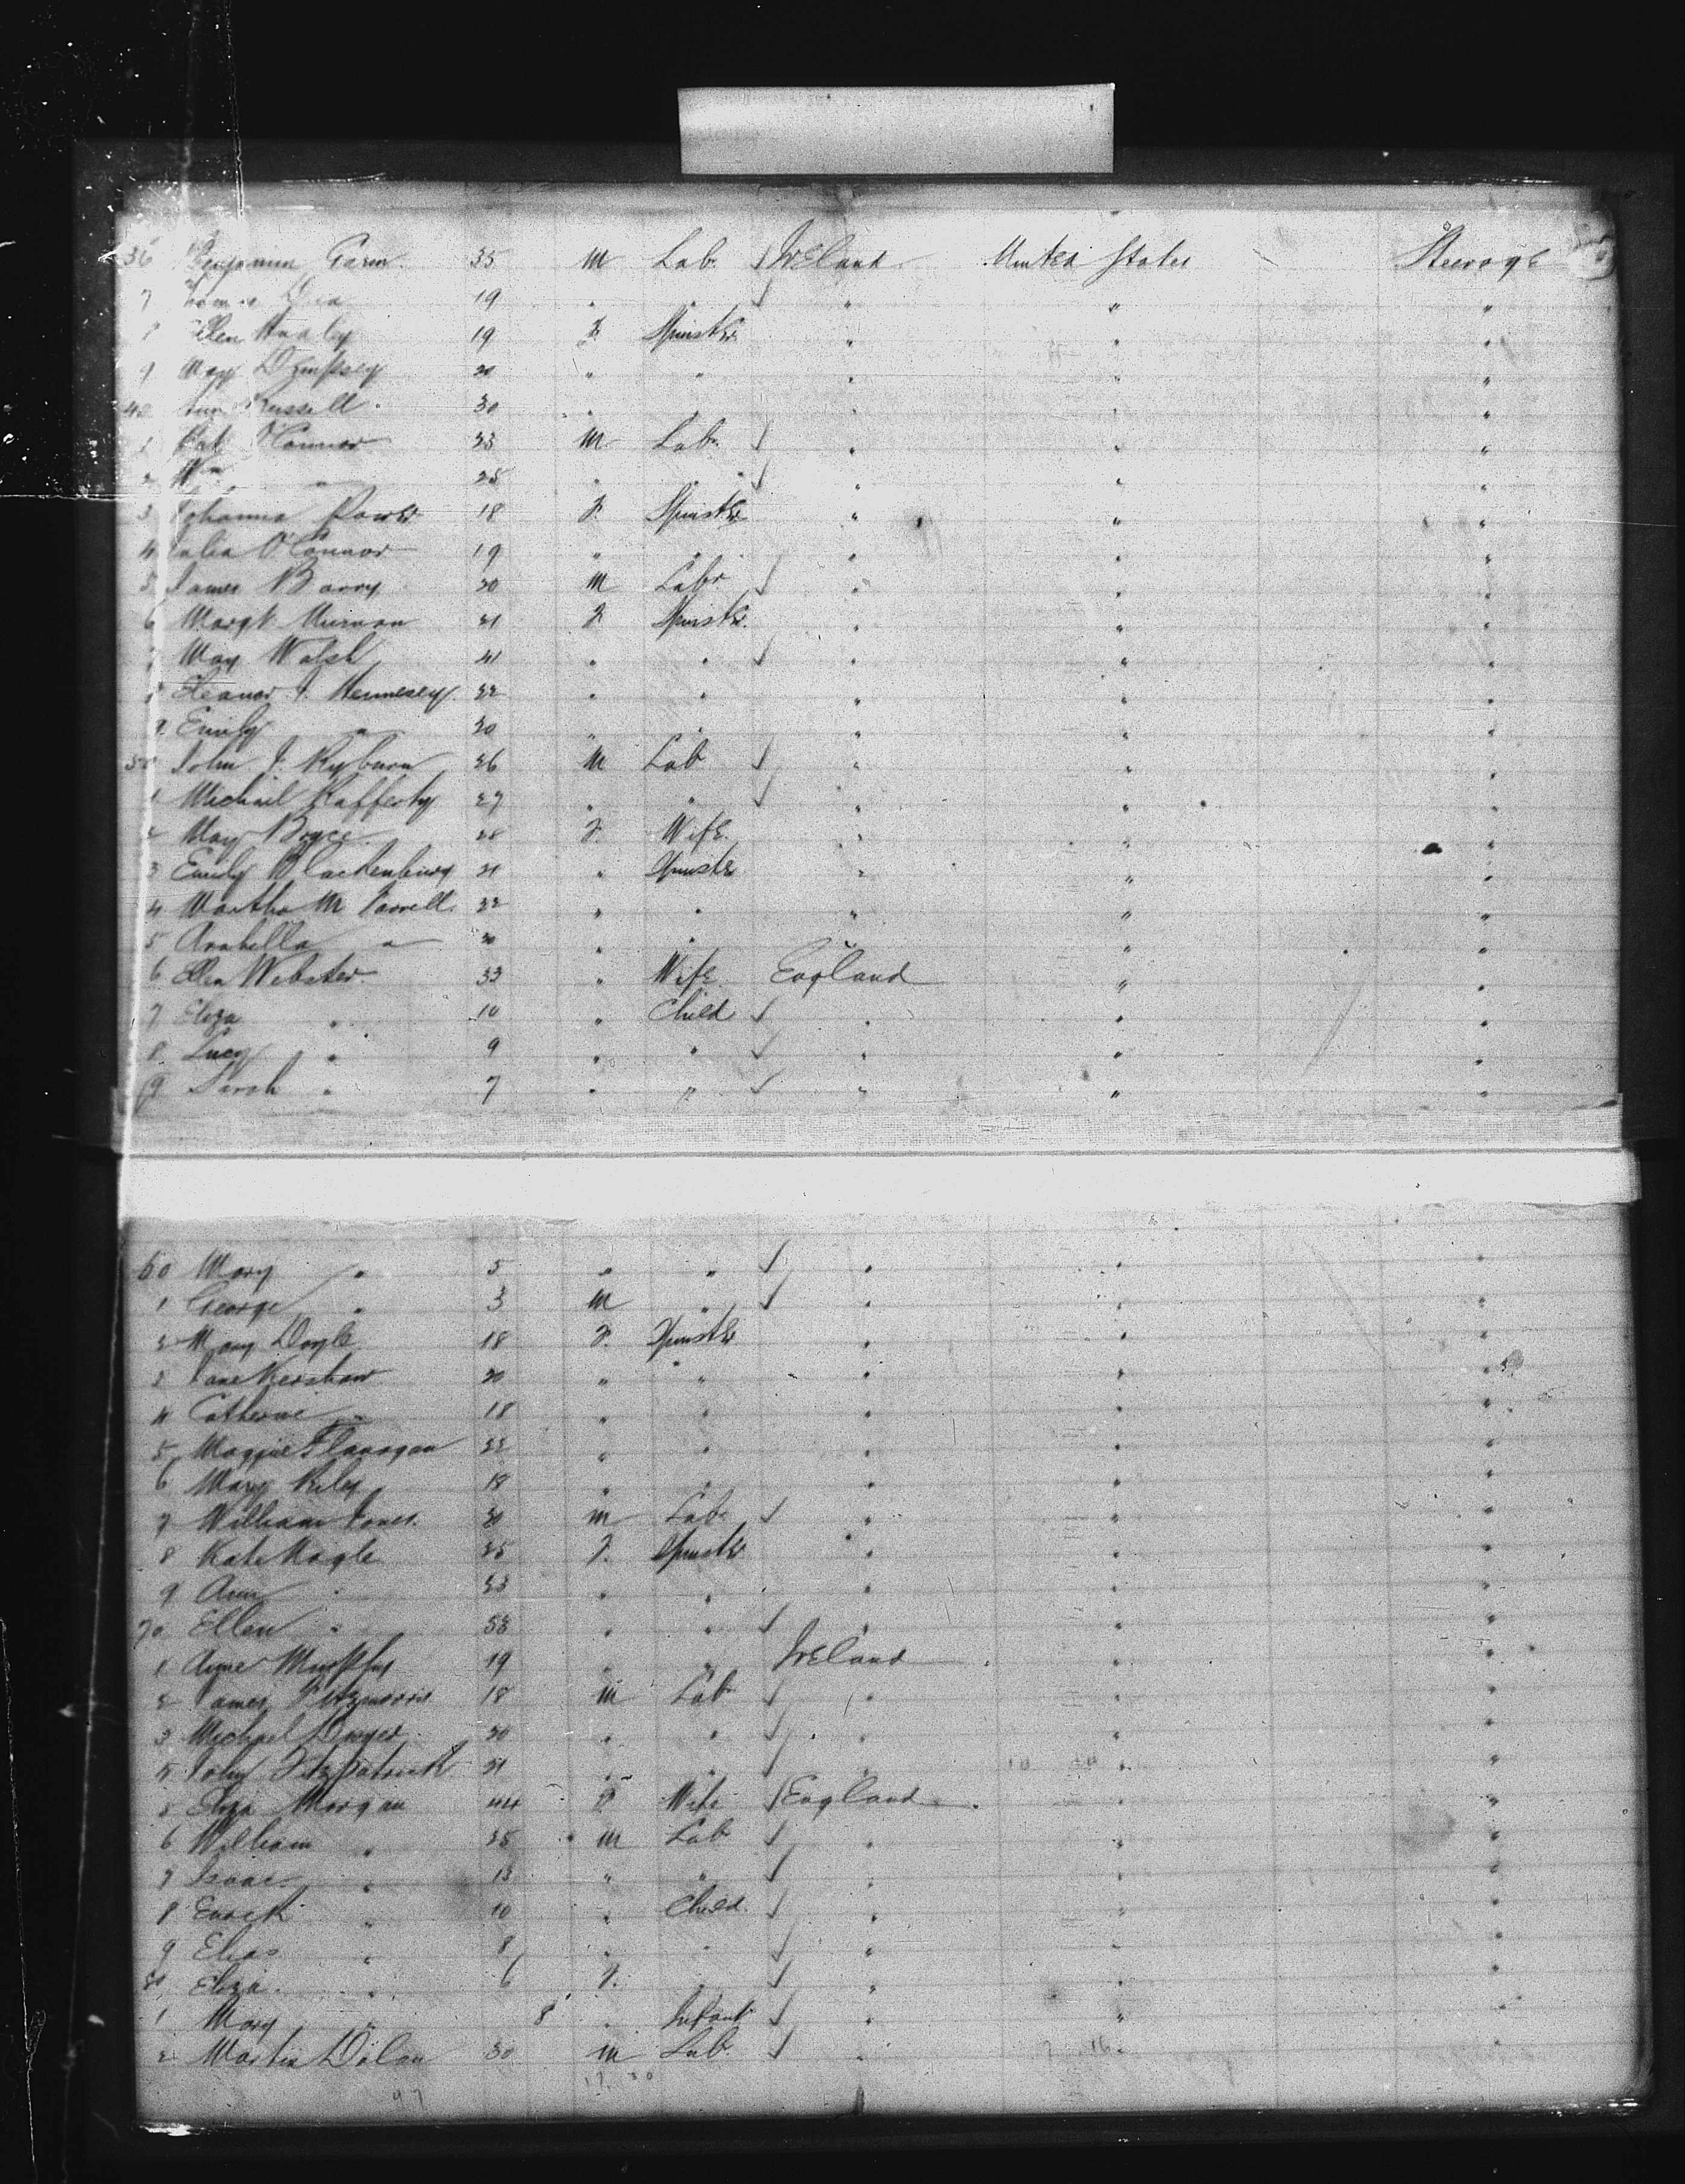 36 Benjamin Garm 35 M Lab. Ireland United States Steerage
7 Dea 19 " " " " "
8 Ellen 19 F. Spinster " " "
9 May Dempsey 20 " " " " "
40 Russell 30 " " " "
1 Pat O'Connor 23 M Lab. " " "
2 Wm " 25 " " " " "
3 Johanna Power 18 F. Spinster " " "
4 Julia O'Connor 19 " " " " "
5 James Barry 20 M Labr " " "
6 Margt 21 F Spinster " " "
7 May Walsh 41 " " " " "
8 Eleanor J. Hennesey 22 " " " " "
9 Emily " 20 " " " " "
50 John J. Ryburn 26 M Lab " " "
1 Michail Rafferty 27 " " " " "
2 May Boyce 28 F. Wife " " "
3 Emily Blackenbury 21 " Spinster " " "
4 Martha M 22 " " " " "
5 Arabella " 20 " " " " "
6 Ellen Webster 33 " Wife England " "
7 Eliza " 10 " Child " " "
8 Lucy " 9 " " " " "
9 Sarah " 7 " " " " "
60 Mary " 5 " " " " "
1 George " 3 M " " " "
2 Mary Doyle 18 F. Spinster " " "
3 Jane Kershaw 20 " " " " "
4 Catherine " 18 " " " " "
5 Maggie Flanagan 22 " " " " "
6 Mary Riley 18 " " " " "
7 William Jones M Lab. " " "
8 Kate Nagle 25 F. Spinster " " "
9 Ann " 23 " " " " "
70 Ellen " " " " " "
1 Murphy 19 " " Ireland " "
2 James Fitzmorris 18 M Lab " " "
3 Michael Dwyer 20 " " " " "
5 John Fitzpatrick 21 " " " " "
5 Eliza Morgan 44 F Wife England " "
6 William " 25 M Lab " " "
7 Isaac " 13 " " " " "
8 Enock " 10 " Child " " "
9 Elias " 8 " " " " "
80 Eliza " 6 F. " " " "
1 Mary " 8 " Infant " "
2 Martin Dolan 30 M Lab. "
97